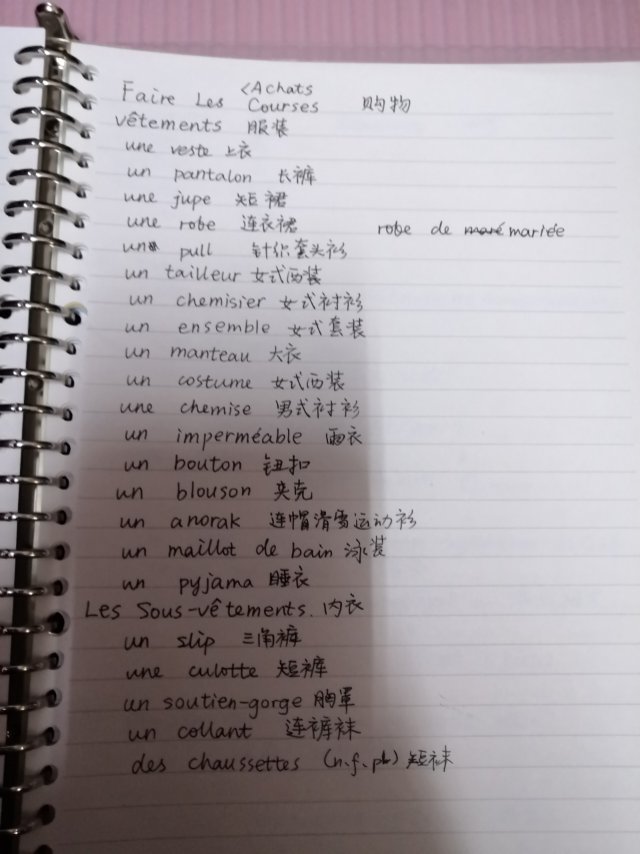 Faire Les <Achats
Courses 购物
vêtements 服装
une veste 上衣
un pantalon 长裤
une jupe 短裙
une robe 连衣裙 robe de mariée
un pull 针织套头衫
un tailleur 女式西装
un chemisier 女式衬衫
un ensemble 女式套装
un manteau 大衣
un costume 女式西装
une chemise 男式衬衫
un imperméable 雨衣
un bouton 钮扣
un blouson 夹克
un anorak 连帽滑雪运动衫
un maillot de bain 泳装
un pyjama 睡衣
Les Sous-vêtements. 内衣
un slip 三角裤
une culotte 短裤
un soutien-gorge 胸罩
un collant 连裤袜
des chaussettes (n.f.pl) 短袜